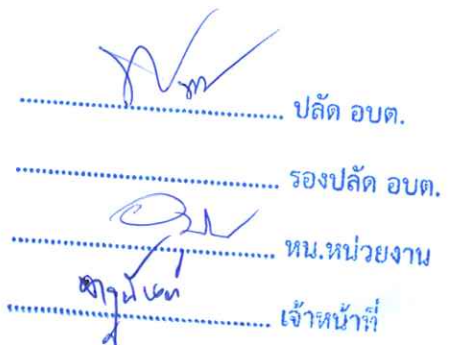 .................................................. ปลัด อบต.
.................................................. รองปลัด อบต.
.................................................. หน.หน่วยงาน
.................................................. เจ้าหน้าที่